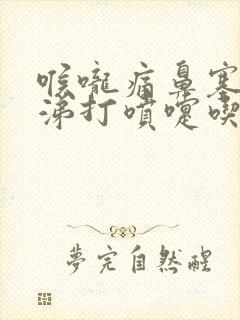 喉嚨痛鼻塞
涕打噴嚏喫
夢完自然醒